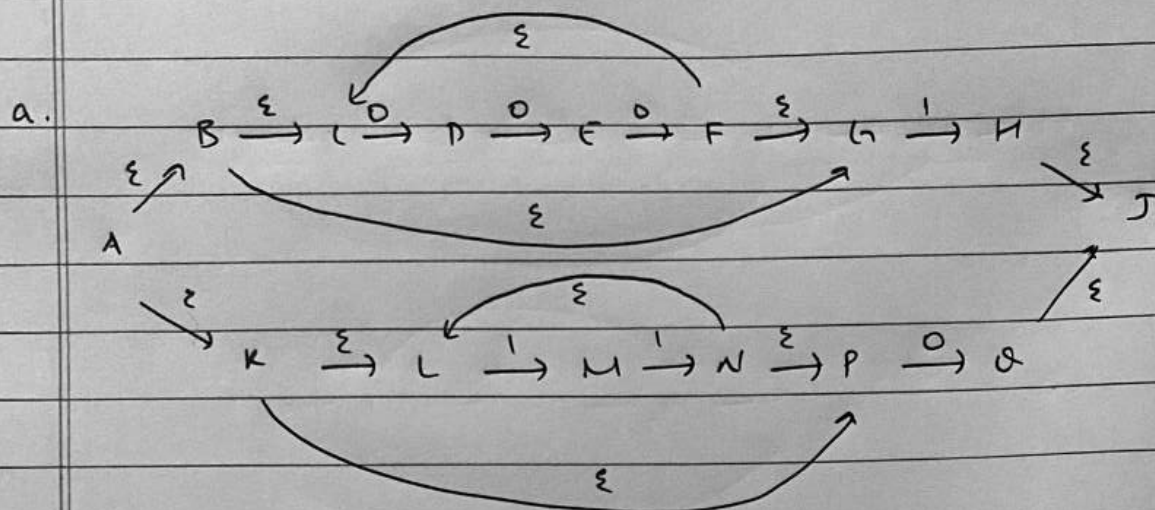 ε
a. B ε C 0 D 0 E 0 F ε G 1 H
ε ε ε
A J
ε ε ε
K ε L 1 M 1 N ε P 0 Q
ε